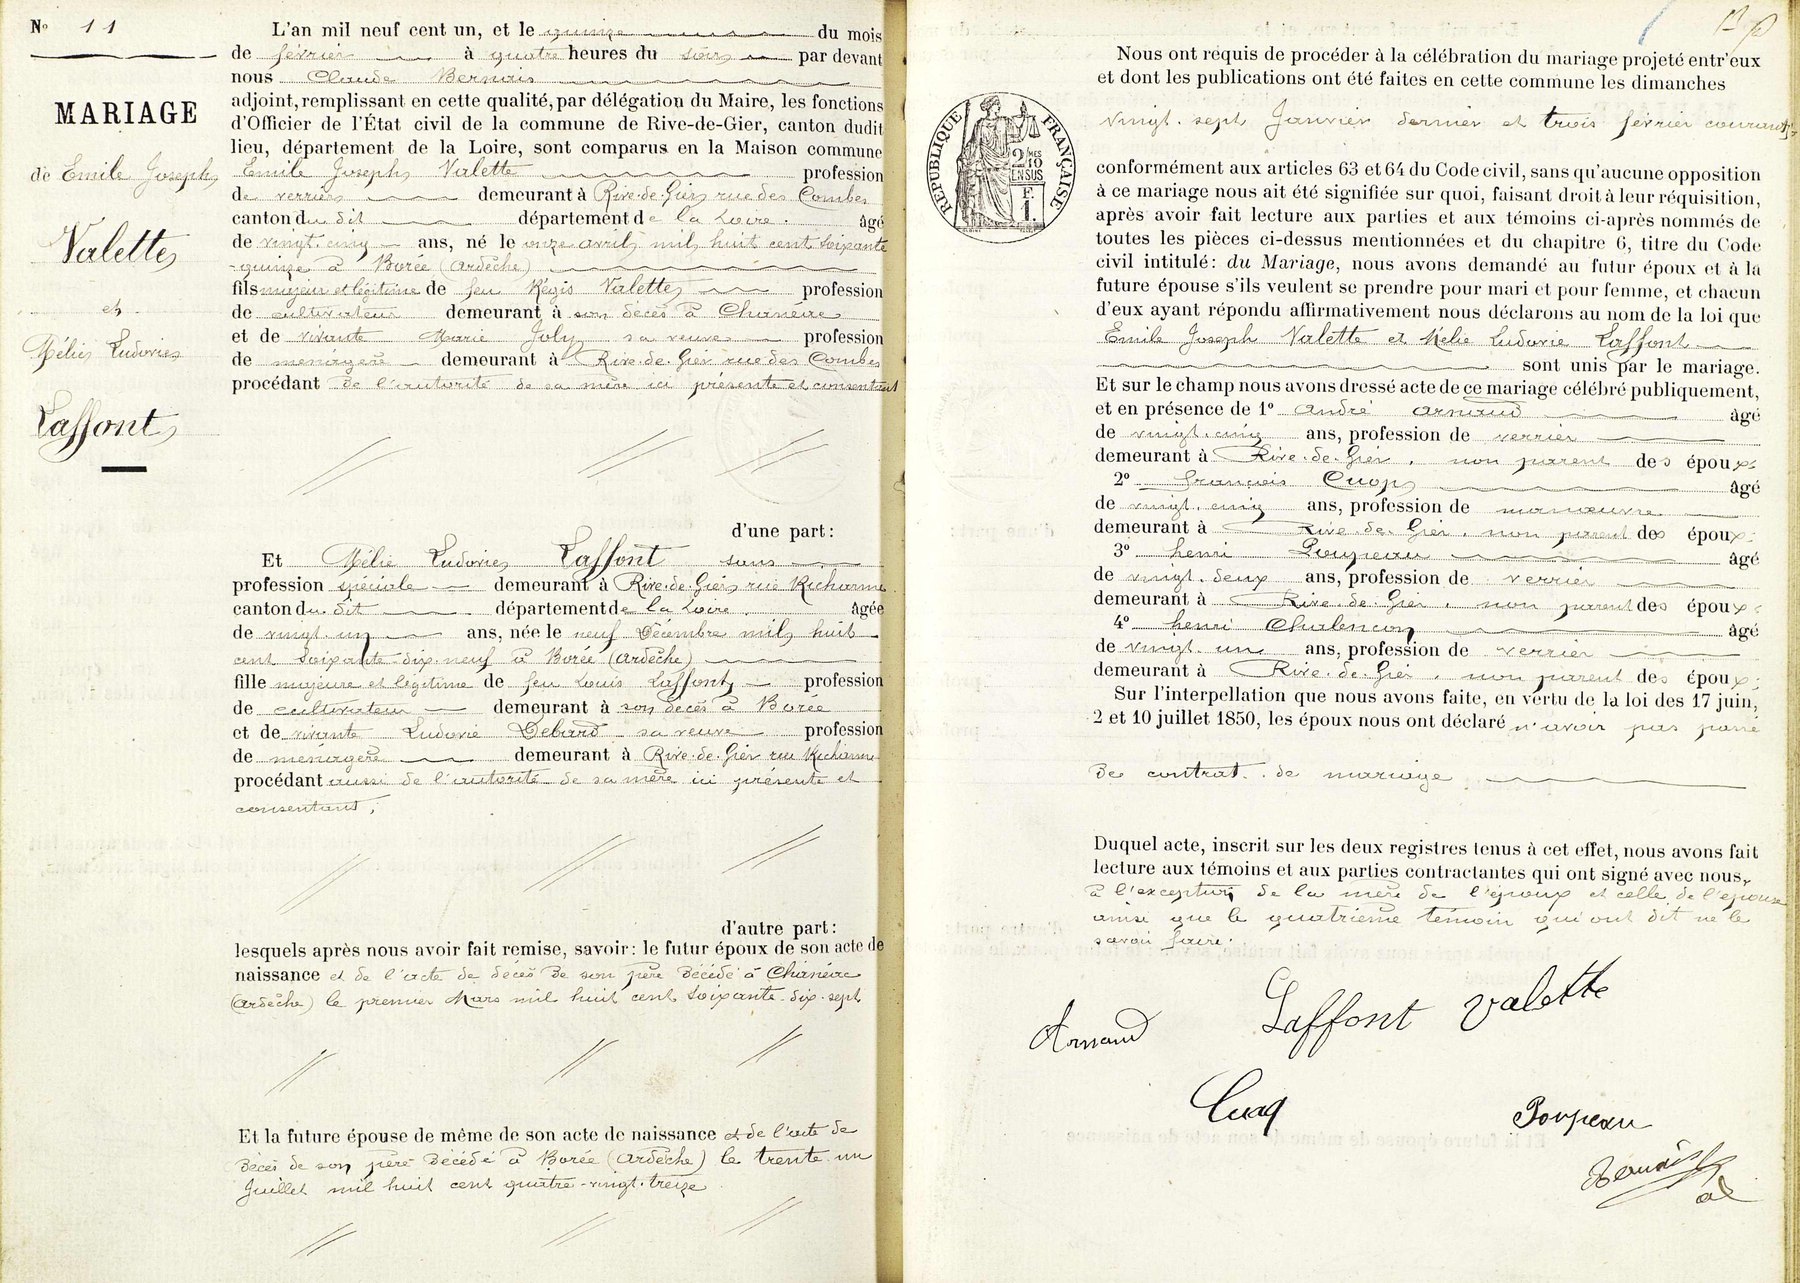 N° 11
MARIAGE
de Emile Joseph
Valette
et
Mélie Ludovie
Laffont
L'an mil neuf cent un, et le quinze du mois
de février à quatre heures du soir par devant
nous Claude Bernais
adjoint, remplissant en cette qualité, par délégation du Maire, les fonctions
d'Officier de l'État civil de la commune de Rive-de-Gier, canton dudit
lieu, département de la Loire, sont comparus en la Maison commune
Emile Joseph Valette profession
de verrier demeurant à Rive-de-Gier, rue des Combes
canton du dit département de la Loire. âgé
de vingt-cinq ans, né le onze avril mil huit cent soixante
-quinze à Borée (Ardèche)
fils majeur et légitime de feu Régis Valette profession
de cultivateur demeurant à son décès à Chanéac
et de vivante Marie Joly sa veuve profession
de ménagère demeurant à Rive-de-Gier rue des Combes
procédant de l'autorité de sa mère ici présente et consentant
d'une part:
Et Mélie Ludovie Laffont sans
profession spéciale demeurant à Rive-de-Gier, rue Richarme
canton du dit département de la Loire. âgée
de vingt-un ans, née le neuf Décembre mil huit
cent soixante-dix-neuf à Borée (Ardèche)
fille majeure et légitime de feu Louis Laffont profession
de cultivateur demeurant à son décès à Borée
et de vivante Ludovie Debard sa veuve profession
de ménagère demeurant à Rive-de-Gier rue Richarme
procédant aussi de l'autorité de sa mère ici présente et
consentant,
d'autre part:
lesquels après nous avoir fait remise, savoir: le futur époux de son acte de
naissance et de l'acte de décès de son père décédé à Chanéac
(Ardèche) le premier Mars mil huit cent soixante-dix-sept
Et la future épouse de même de son acte de naissance et de l'acte de
décès de son père décédé à Borée (Ardèche) le trente-un
Juillet mil huit cent quatre-vingt-treize
Nous ont requis de procéder à la célébration du mariage projeté entr'eux
et dont les publications ont été faites en cette commune les dimanches
vingt-sept Janvier dernier et trois février courant,
RÉPUBLIQUE FRANÇAISE
2/MES
10
EN SUS
F.
1.
conformément aux articles 63 et 64 du Code civil, sans qu'aucune opposition
à ce mariage nous ait été signifiée sur quoi, faisant droit à leur réquisition,
après avoir fait lecture aux parties et aux témoins ci-après nommés de
toutes les pièces ci-dessus mentionnées et du chapitre 6, titre du Code
civil intitulé: du Mariage, nous avons demandé au futur époux et à la
future épouse s'ils veulent se prendre pour mari et pour femme, et chacun
d'eux ayant répondu affirmativement nous déclarons au nom de la loi que
Emile Joseph Valette et Mélie Ludovie Laffont
sont unis par le mariage.
Et sur le champ nous avons dressé acte de ce mariage célébré publiquement,
et en présence de 1° André Arnaud âgé
de vingt-cinq ans, profession de verrier
demeurant à Rive-de-Gier, non parent des époux;
2° François Cuoq âgé
de vingt-cinq ans, profession de manœuvre
demeurant à Rive-de-Gier, non parent des époux;
3° henri Poupeau âgé
de vingt-deux ans, profession de verrier
demeurant à Rive-de-Gier, non parent des époux;
4° henri Chalencon âgé
de vingt-un ans, profession de verrier
demeurant à Rive-de-Gier, non parent des époux;
Sur l'interpellation que nous avons faite, en vertu de la loi des 17 juin,
2 et 10 juillet 1850, les époux nous ont déclaré n'avoir pas passé
de contrat de mariage
Duquel acte, inscrit sur les deux registres tenus à cet effet, nous avons fait
lecture aux témoins et aux parties contractantes qui ont signé avec nous,
à l'exception de la mère de l'époux et celle de l'épouse
ainsi que le quatrième témoin qui ont dit ne le
savoir faire.
Laffont Valette
Arnaud
Cuoq
Poupeau
Bernais